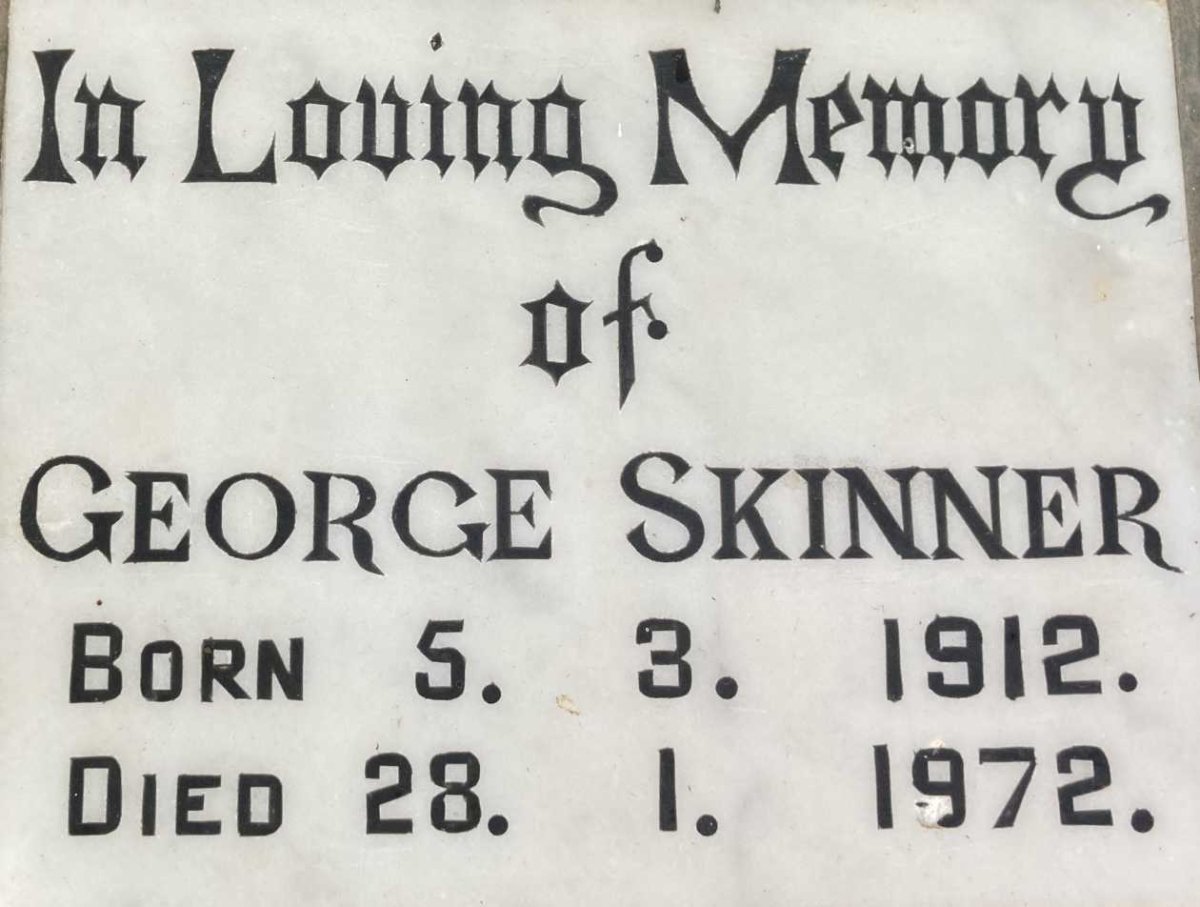 In Loving Memory
of
GEORGE SKINNER
BORN 5. 3. 1912.
DIED 28. 1. 1972.